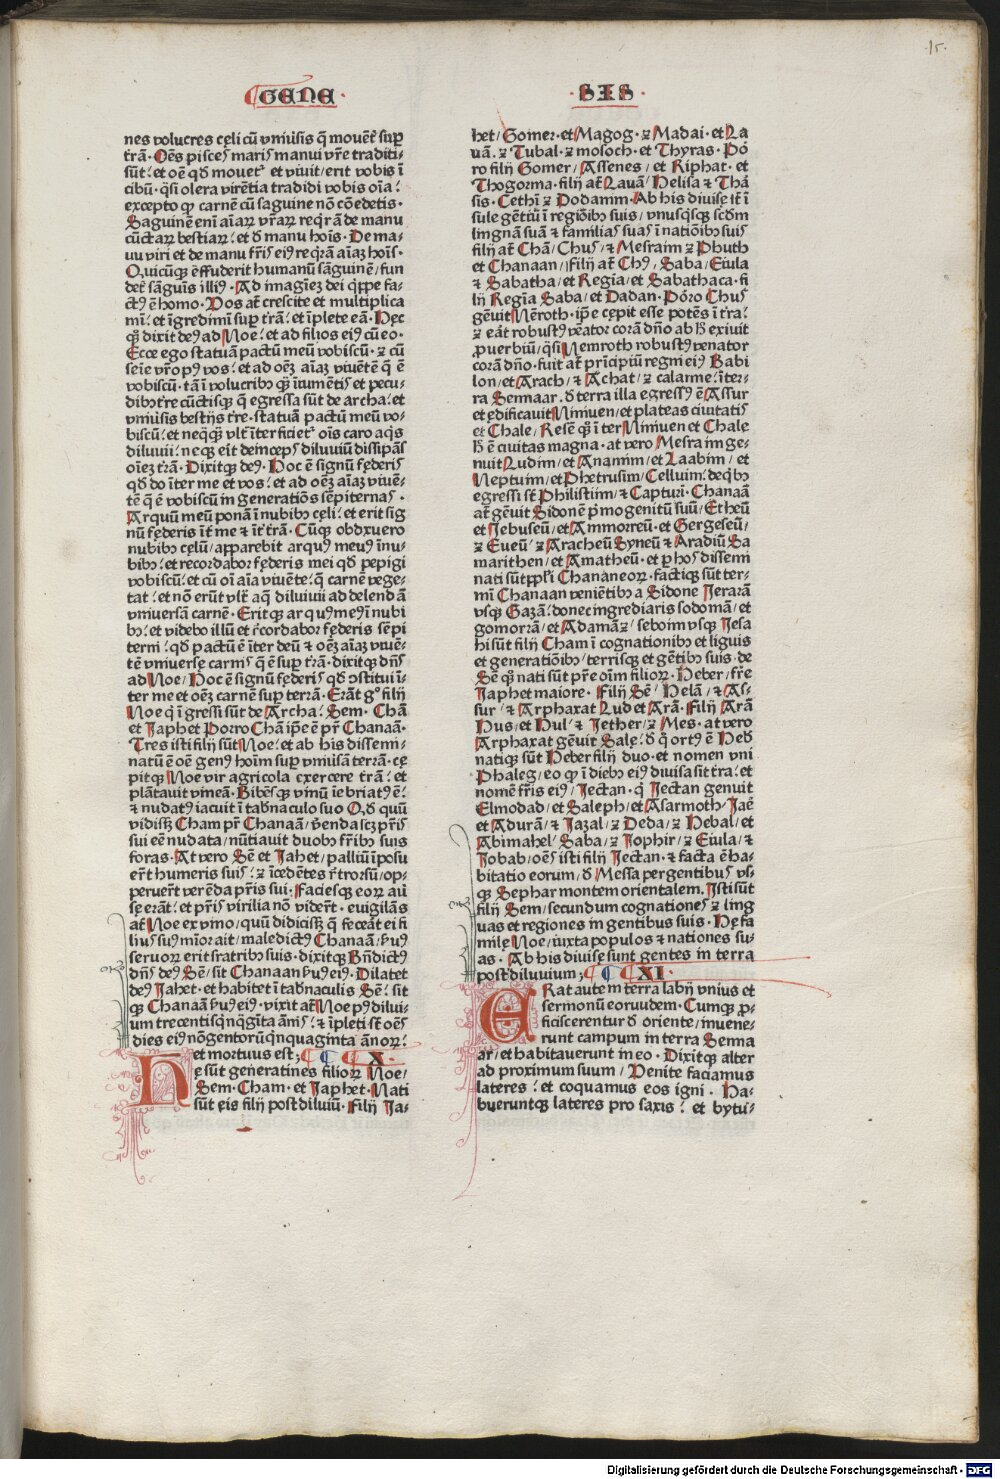 .15.
GENE·
·SIS·
nes volucres cęli cũ vniũsis q̃ mouẽt᷑ sup̱
tr̃ã· Oẽs pisceꝰ mariꝰ manui vr̃e traditi-
sũt: et oẽ qđ mouet᷑ et viuit/erit vobis ĩ
cibũ· q̃si olera virẽtia tradidi vobis oĩa:
excepto ꝙ carnẽ cũ saguine nõ cõedetis·
Saguinẽ enĩ aĩaꝝ vr̃aꝝ req̃rã de manu
cũctaꝝ bestiaꝝ: et đ manu hoĩs· De ma-
uu viri et de manu fr̃is eiꝰ req̃rã aĩaꝫ hoĩs·
Quicũqꝫ effuderit humanũ sãguinẽ/fun
det᷑ sãguis illiꝰ· Ad imagiẽꝫ dei q̃ppe fa-
ctꝰ ẽ homo· Vos at̃ crescite et multiplica
mĩ: et ĩgredimĩ sup̱ tr̃ã: et ĩplete eã· Hęc
qꝫ dixit deꝰ ad Noe: et ad filios eiꝰ cũ eo·
Ecce ego statuã pactũ meũ vobiscũ· ⁊ cũ
seĩe vr̃o pꝰ vos: et ad oẽꝫ aĩaꝫ viuẽtẽ q̃ ẽ
vobiscũ· tã ĩ volucribꝰ qꝫ ĩ iumẽtis et pecu-
dibꝰ tr̃e cũctisqꝫ q̃ egressa sũt de archa: et
vniũsis bestijs tr̃e· statuã pactũ meũ vo-
biscũ: et neq̃qꝫ vlt᷑ ĩterficiet᷑ oĩs caro aqs
diluuii: neqꝫ eit deincepꝰ diluuiũ dissipãs
oĩeꝫ tr̃ã· Dixitqꝫ deꝰ· Hoc ẽ signũ fęderis
qđ do ĩter me et vos: et ad oẽꝫ aĩaꝫ viuẽ-
tẽ q̃ ẽ vobiscũ in generatiõs sẽpiternas·
Arquũ meũ ponã ĩ nubibꝰ cęli: et erit sig
nũ fęderis ĩt᷑ me ⁊ ĩt᷑ tr̃ã· Cũqꝫ obdxuero
nubibꝰ cęlũ/apparebit arquꝰ meus ĩ nu-
bibꝰ: et recordabor fęderis mei qđ pepigi
vobiscũ: et cũ oĩ aĩa viuẽte: q̃ carnẽ vege-
tat: et nõ erũt vlt᷑ aq̃ diluiuii ad delendã
vniuersã carnẽ· Eritqꝫ arquꝰ meꝰ ĩ nubi
bꝰ: et videbo illũ et r̃cordabor fęderis sẽpi
terni: qđ pactũ ẽ ĩter deũ ⁊ oẽꝫ aĩaꝫ viuẽ-
tẽ vniuersę carnis q̃ ẽ sup̱ tr̃ã· dixitqꝫ dñs
ad Noe/Hoc ẽ signũ fęderis qđ ꝯstitui ĩ-
ter me et oẽꝫ carnẽ sup̱ terrã· Erãt gͦ filij
Noe q̃ ĩgressi sũt de Archa: Sem· Chã
et Japhet Porro Chã ip̃e ẽ pr̃ Chanaã·
Tres isti filij sũt Noe: et ab his dissemi-
natũ ẽ oẽ genꝰ hoĩm sup̱ vniũsã terrã· cę
pitqꝫ Noe vir agricola exercere tr̃ã: et
plãtauit vineã· Bibẽsqꝫ vinũ ĩebriatꝰ ẽ:
⁊ nudatꝰ iacuit ĩ tab̃naculo suo Qđ quũ
vidissꝫ Cham pr̃ Chanaã/v̓enda scꝫ pr̃is
sui eẽ nudata/nũtiauit duobꝰ fr̃ibꝰ suis
foras· At vero Sẽ et Jahet/palliũ ĩposu
er̃t humeris suis: ⁊ ĩcedẽtes r̃trorsũ/op-
peruer̃t ver̃eda pr̃is sui· Faciesqꝫ eoꝝ auĩ
sę erãt: et pr̃is virilia nõ vider̃t· euigilãs
at̃ Noe ex vino/quũ didicissꝫ q̃ feceãt ei fi
liꝰ suꝰ mĩor ait/maledictꝰ Chanaã/ſ̓uꝰ
seruoꝝ erit sratribꝰ suis· dixitqꝫ Bñdictꝰ
dñs deꝰ Sẽ/sit Chanaan ſ̓uꝰ eiꝰ· Dilatet
deꝰ Jahet· et habitet ĩ tab̃naculis Sẽ: sit
qꝫ Chanaã ſ̓uꝰ eiꝰ· vixit at̃ Noe pꝰ diluui-
um trecentis q̃nq̃gĩta ãnis: ⁊ ĩpleti st̃ oẽs
dies eiꝰ nõgentorũ q̃nquaginta ãnoꝝ:
et mortuus est; X·
Hę sũt generatines filioꝝ Noe/
Sem· Cham· et Japhet· Nati
sũt eis filij post diluiũ· Filij Ja-
het/Gomer· et Magog· ⁊ Madai· et La
uã· ⁊ Tubal· ⁊ mosoch· et Thyras· Pó
ro filij Gomer/Assenes/ et Riphat· et
Thogorma· filij at̃ Lauã/Helisa ⁊ Thá
sis· Cethĩ ⁊ Dodamm· Ab his diuisę st̃ ĩ
sulę gẽtiũ ĩ regiõibꝰ suis/vnusq̃sqꝫ scđm
lingnã suã ⁊ familias suas ĩ natiõibꝰ suis
filij at̃ Chã/Chus/⁊ Mesraim ⁊ Phuth
et Chanaan/filij at̃ Chꝰ/Saba/Eiula
⁊ Sabatha/et Regia/et Sabathaca· fi
lij Regĩa Saba/et Dadan· Póro Chus
gẽuit Nẽroth· ip̃e cępit esse potẽs ĩ tr̃a:
⁊ eãt robustꝰ v̓eator corã dño ab ħ exiuit
ꝓuerbiũ/q̃si Nemroth robustꝰ venator
corã dño· fuit at̃ prĩcipiũ regni eiꝰ Babi
lon/et Arach/⁊ Achat/⁊ calanne: ĩter-
ra Sennaar· đ terra illa egressꝰ ẽ Assur
et ędificauit Niniuen/et plateas ciuitatis
et Chale/Resẽ qꝫ ĩter Niniuen et Chale
ħ ẽ ciuitas magna· at vero Mesraim ge-
nuit Ludim/et Ananim/et Laabim/et
Neptuim/et Phetrusim/Celluim: deq̃bꝰ
egressi st̃ Philistiim/⁊ Capturi· Chanaã
at̃ gẽuit Sidonẽ p̃mogenitũ suũ/Etheũ
et Jebuseũ/et Ammorreũ· et Gergeseũ/
⁊ Eueũ/⁊ Aracheũ Syneũ ⁊ Aradiũ Sa
marithen/et Amatheũ· et ꝑ hos dissemi
nati sũt ppl̃i Chananeoꝝ· factiqꝫ sũt ter-
mĩ Chanaan veniẽtibꝰ a Sidone Jerarã
vsqꝫ Gazã: donec ingrediaris sodomã/et
gomorrã/et Adamã ⁊/seboim vsqꝫ Jesa
hi sũt filij Cham ĩ cognationibꝰ et liguis
et generatiõibꝰ/terrisqꝫ et gẽtibꝰ suis· de
Sẽ qꝫ nati sũt pr̃e oĩm filioꝝ· Heber/fr̃e
Japhet maiore· Filij Sẽ/Helã/⁊ As-
sur/⁊ Arphaxat Lud et Arã· Filij Arã
Hus/et Hul/⁊ Jether/⁊ Mes· at vero
Arphaxat gẽuit Salę: đ q̃ ortꝰ ẽ Heb̃
natiqꝫ sũt Heber filij duo· et nomen vni
Phaleg/eo ꝙ ĩ diebꝰ eiꝰ diuisa sit tr̃a: et
nomẽ fr̃is eiꝰ/Jectan· q̃ Jectan genuit
Elmodad/et Saleph/et Asarmoth/Jaẽ
et Adurã/⁊ Jazal/⁊ Deda/⁊ Hebal/et
Abimahel/Saba/⁊ Jophir/⁊ Eiula/⁊
Jobab/oẽs isti filij Jectan· ⁊ facta ẽ ha-
bitatio eorum/đ Messa pergentibus vs-
qꝫ Sephar montem orientalem. Isti sũt
filij Sem/secundum cognationes ⁊ ling
uas et regiones in gentibus suis· Hę fa
milę Noe/iuxta populos ⁊ nationes su-
as· Ab his diuisę sunt gentes in terra
post diluuium; XI·
Erat autem terra labij vnius et
sermonũ eoruudem· Cumqꝫ ꝓ-
ficiscerentur đ oriente/inuene-
runt campum in terra Senna
ar/et habitauerunt in eo· Dixitqꝫ alter
ad proximum suum/Venite faciamus
lateres: et coquamus eos igni· Ha-
bueruntqꝫ lateres pro saxis: et bytu-
Digitalisierung gefördert durch die Deutsche Forschungsgemeinschaft - DFG